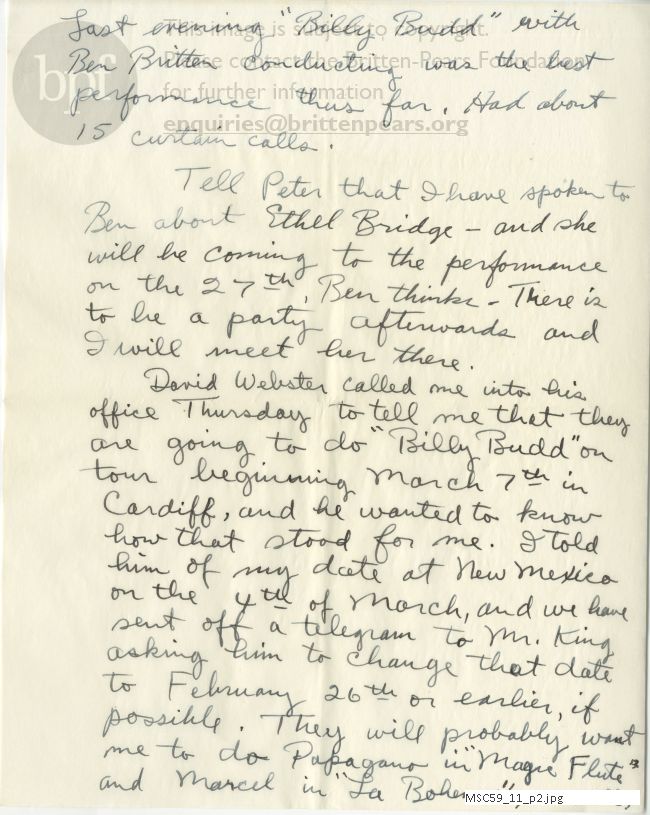 Last evening "Billy Budd" with
Ben Britten conducting was the best
performance thus far. Had about
15 curtain calls.
Tell Peter that I have spoken to
Ben about Ethel Bridge - and she
will be coming to the performance
on the 27th, Ben thinks - There is
to be a party afterwards and
I will meet her there.
David Webster called me into his
office Thursday to tell me that they
are going to do "Billy Budd" on
tour beginning March 7th in
Cardiff, and he wanted to know
how that stood for me. I told
him of my date at New Mexico
on the 4th of March, and we have
sent off a telegram to Mr. King
asking him to change that date
to February 26th or earlier, if
possible. They will probably want
me to do Papagano in "Magic Flute"
and Marcel in "La
bpf
This image is subject to copyright.
Please contact the Britten-Pears Foundation
for further information
enquiries@brittenpears.org
MSC59_11_p2.jpg